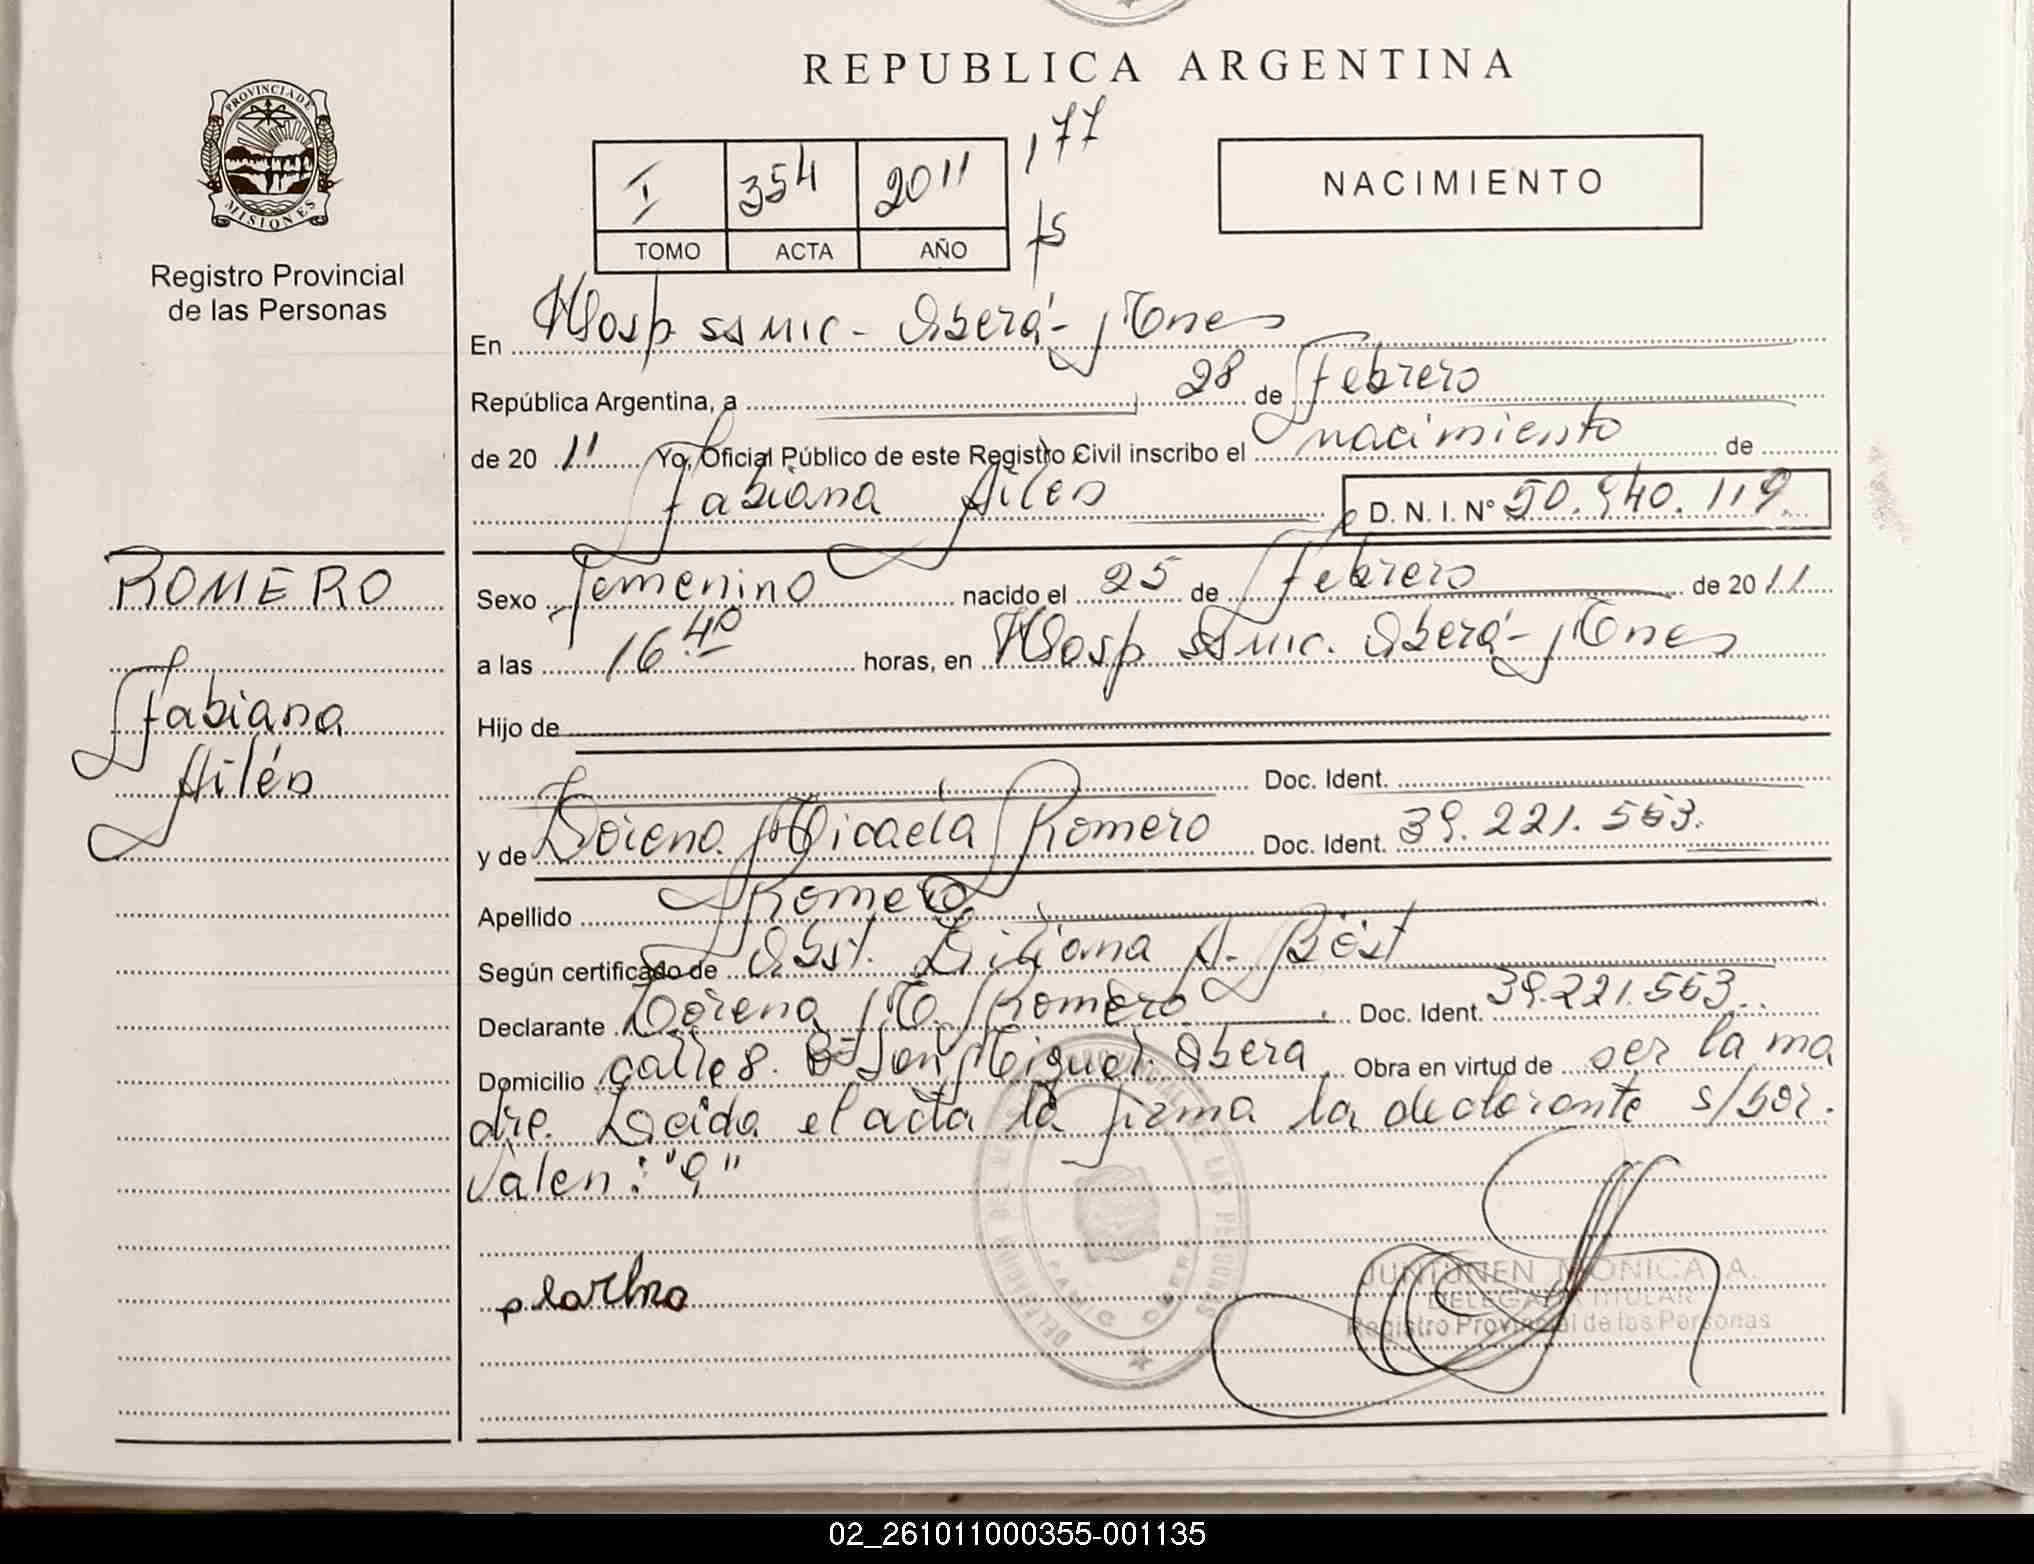 REPUBLICA ARGENTINA
PROVINCIA DE
MISIONES
Registro Provincial
de las Personas
I 354 2011 177
TOMO ACTA AÑO fs
NACIMIENTO
En Hosp SSMIC - Oberá - Mnes
República Argentina, a 28 de Febrero
de 2011 Yo, Oficial Público de este Registro Civil inscribo el nacimiento de
Fabiana Ailén D. N. I. Nº 50.940.119
ROMERO
Fabiana
Ailén
Sexo femenino nacido el 25 de Febrero de 2011
a las 16 40 horas, en Hosp SSMIC. Oberá - Mnes
Hijo de
Doc. Ident.
y de Lorena Micaela Romero Doc. Ident. 39.221.553.
Apellido Romero
Según certificado de Obst. Liliana A. Böst
Declarante Lorena M. Romero Doc. Ident. 39.221.553
Domicilio calle 8. Bº San Miguel. Oberá Obra en virtud de ser la ma
dre. Leída el acta la firma la declarante s/bor.
valen: "9"
JUNTUNEN MONICA A.
DELEGADA TITULAR
Registro Provincial de las Personas
02_261011000355-001135